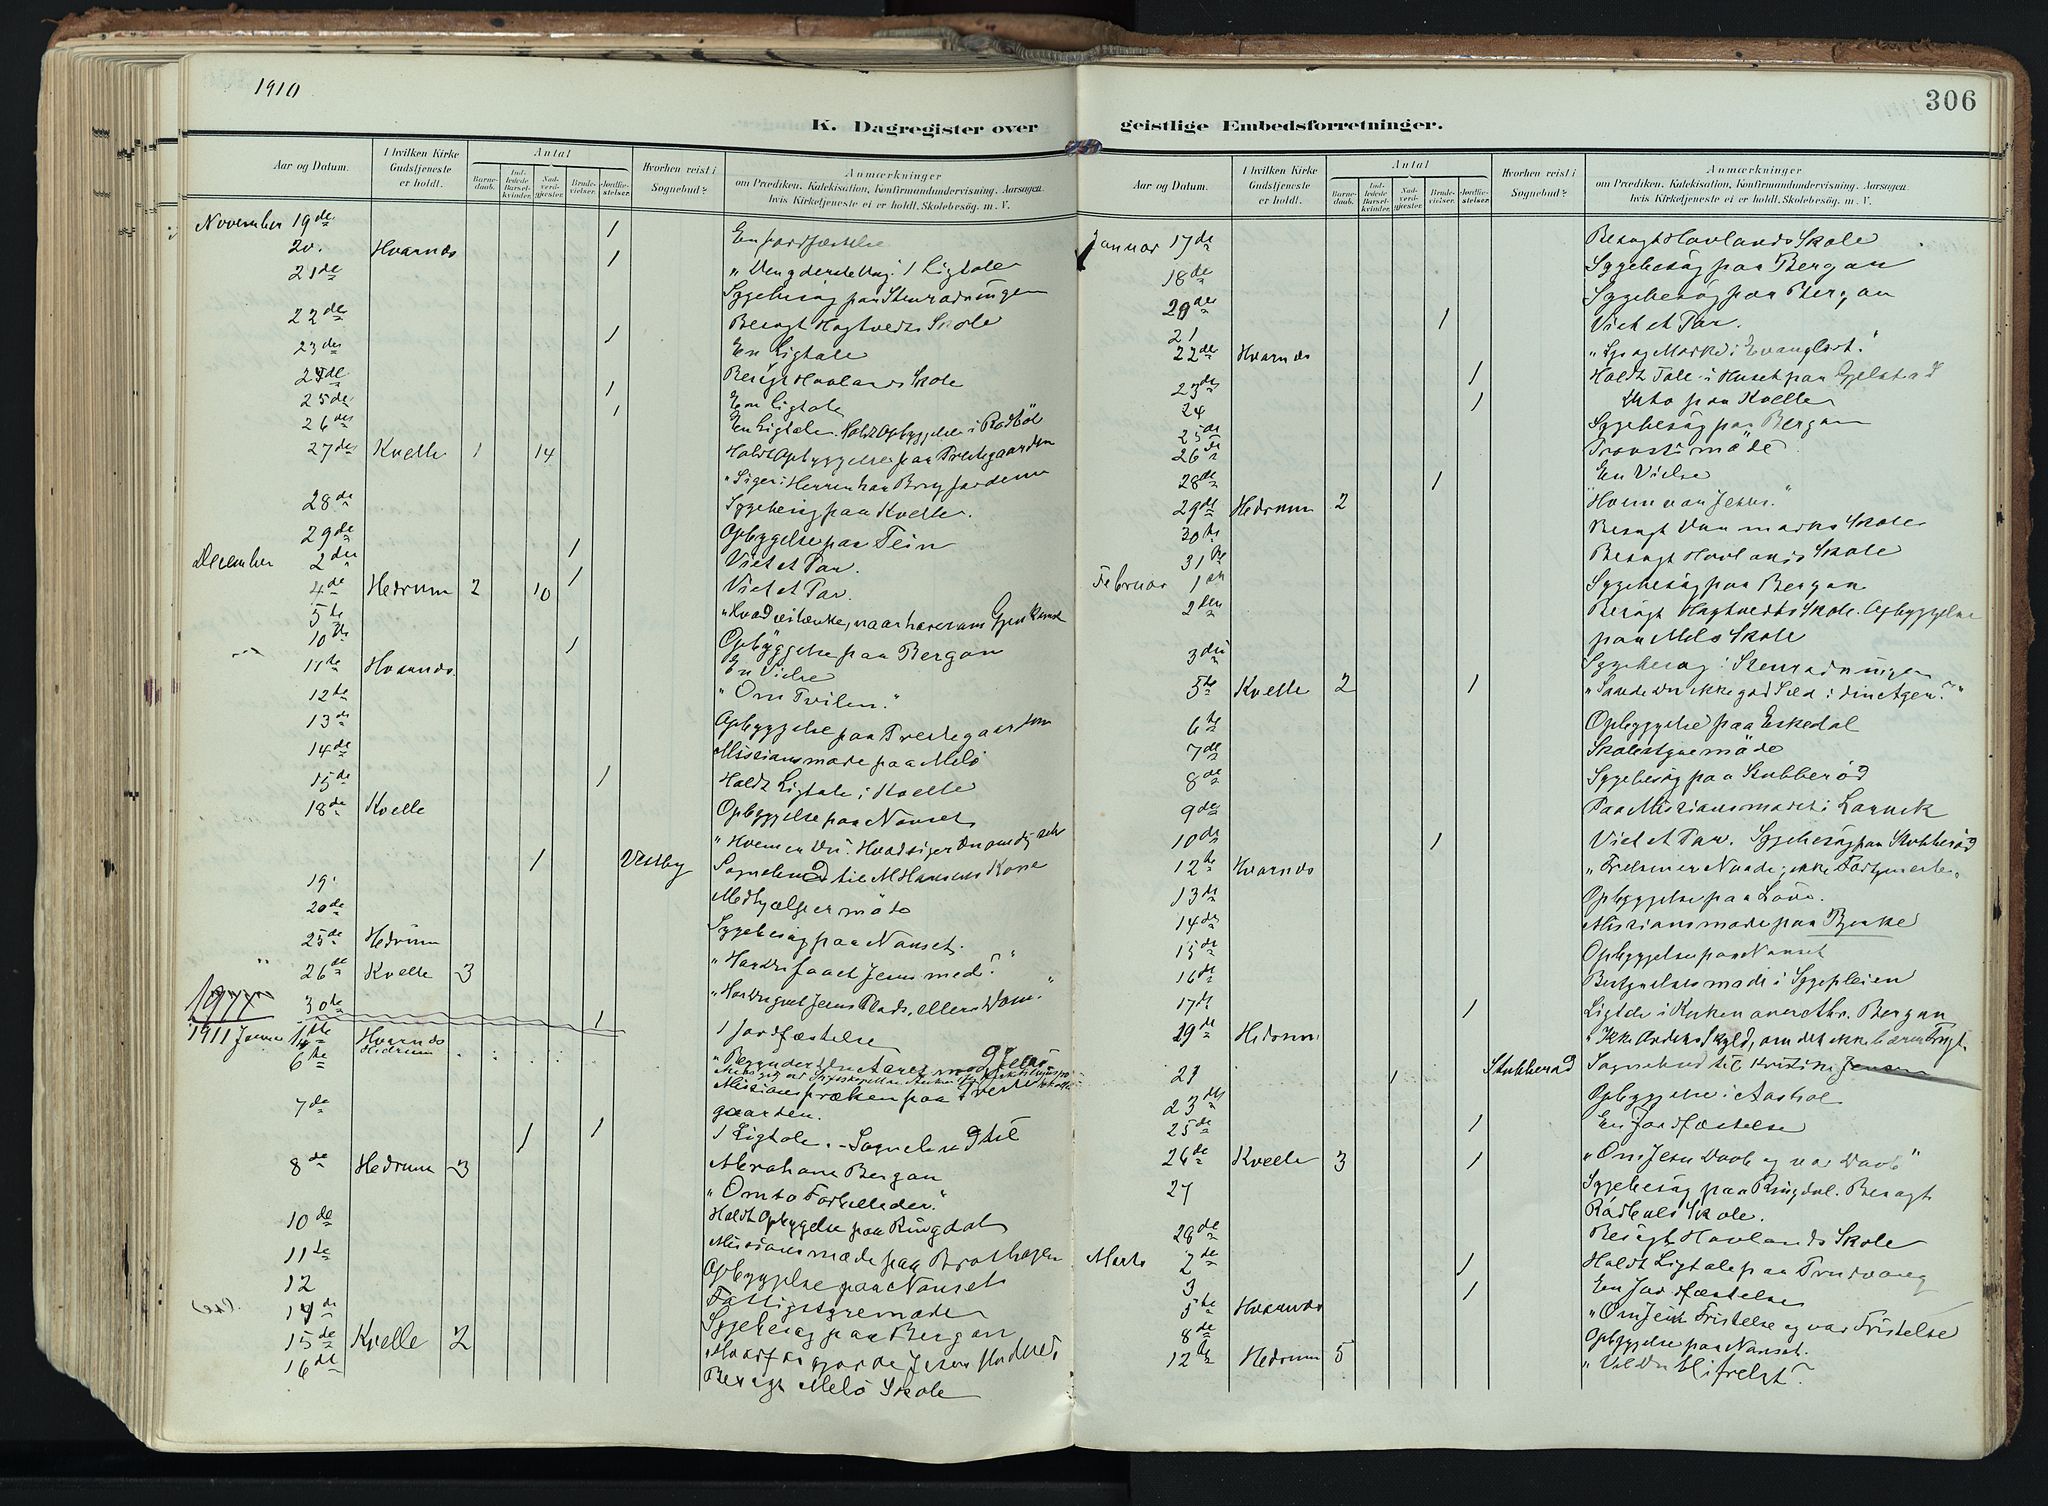 1910
306
K. Dagregister over geistlige Embedsforretninger.
Aar og Datum.
I hvilken Kirke Gudstjeneste er holdt.
Antal
Barnedaab.
Indledede Barselkvinder.
Nadverdgjester.
Brudevielser.
Jordfæstelser.
Hvorhen reist i Sognebud?
Anmærkninger
om Prædiken, Katekisation, Konfirmandundervisning, Aarsagen,
hvis Kirketjeneste ei er holdt, Skolebesøg, m. V.
November 19de 1 En jordfæstelse
20. Hvarnes 1 1 Ligtale
21de Sygebesøg paa Stenradningen
22de 1 Besøgt Hagtvedts Skole
23de En Ligtale
24de 1 Besøgt Hovlands Skole
25de 1 En Ligtale
26de En Ligtale. Holdt Opbyggelse i Rødbøl
27de Kvelle 1 14 Holdt Opbyggelse paa Prestegaarden
28de Sygebesøg paa Kvelle.
29de 1 Opbyggelse paa Tein
December 2den 1 Viet et Par.
4de Hedrum 2 10 Viet et Par.
5te
10de 1 Opbyggelse paa Bergan
11de Hvarnes. En Vielse
12te "Om Tvilen."
13de Opbyggelse paa Prestegaarden
14de Missionsmøde paa Melø
15de 1 Holdt Ligtale i Kvelle
18de Kvelle Opbyggelse paa Nanset
"Hvem er Du? Hvad siger Du om dig selv
1 Vestby Sognebud til M Hansens Kone
19. Medhjælpermøte
20de Sygebesøg paa Nanset.
25de Hedrum "Har du faaet Jesus med?"
26de Kvelle 3
30te 1 1 Jordfæstelse
1911 Januar 1ste Hvarnes
Hedrum
6te Missionspræken paa Prestegaarden.
7de 1 1 1 Ligtale. - Sognebud til
8de Hedrum 3 Abraham Bergan
"Om to Forbilleder."
10de Holdt Opbyggelse paa Ringdal
11te Missionsmøde paa Brathagen
12 Opbyggelse paa Nanset
14de Fattigstyremøde
15de Kvelle 2 Sygebesøg paa Bergan
16de "Hvorfor gjorde Jesus Undere?"
Besøgt Melø Skole
Aar og Datum.
I hvilken Kirke Gudstjeneste er holdt.
Antal
Barnedaab.
Indledede Barselkvinder.
Nadverdgjester.
Brudevielser.
Jordfæstelser.
Hvorhen reist i Sognebud?
Anmærkninger
om Prædiken, Katekisation, Konfirmandundervisning, Aarsagen,
hvis Kirketjeneste ei er holdt, Skolebesøg, m. V.
Januar 17de Besøgt Hovlands Skole
18de Sygebesøg paa Bergan
20de Sygebesøg paa Bergan
21 1 Viet et Par.
22de Hvarnes
23de 1 Holdt Tale i Huset paa Gjelstad
24 1 Dito paa Kvelle
25de Sygebesøg paa Bergan
26de Provstimøde
28de 1 En Vielse
29de Hedrum 2 "Hvem var Jesus."
30te Besøgt Danmarks Skole
31te Besøgt Hovlands Skole
Februar 1ste Sygebesøg paa Bergan
2den Besøgt Hagtvedts Skole. Opbyggelse
paa Melø Skole
3die Sygebesøg i Stenradningen
5te Kvelle 2 1 "Saaede du ikke god Sæd i din Ager?"
6te Opbyggelse paa Eskedal
7de Skolestyremøde
8de Sygebesøg paa Stubberød
9de Paa Missionsmødet i Larvik
10de 1 Viet et Par. Sygebesøg paa Stubberød
12te Hvarnes "Frelsen er Naade, ikke Fortjeneste"
13de Opbyggelse paa Løve.
14de Missionsmøde paa Bjerke
15de Opbyggelse paa Nanset
16de
17de 1 Ligtale i Kirken over Abr. Bergan
19de Hedrum "Ikke Ordets Skyld, om det ikke bærer Frugt.
21 1 Stubberød Sognebud til Kristine Jensen
23de Opbyggelse i
25de 1 En Jordfæstelse
26de Kvelle 3 1 "Om Jesu Daab og vor Daab"
27 Sygebesøg paa Ringdal. Besøgt
Rødbøls Skole.
28de Besøgt Hovlands Skole
Marts 2de 1 Holdt Ligtale paa Trudvang
3 1 En Jordfæstelse
5te Hvarnes "Om Jesu Fristelse og vor Fristelse
8de Opbyggelse paa Nanset.
12te Hedrum 5 "Vil Du bli frelst?